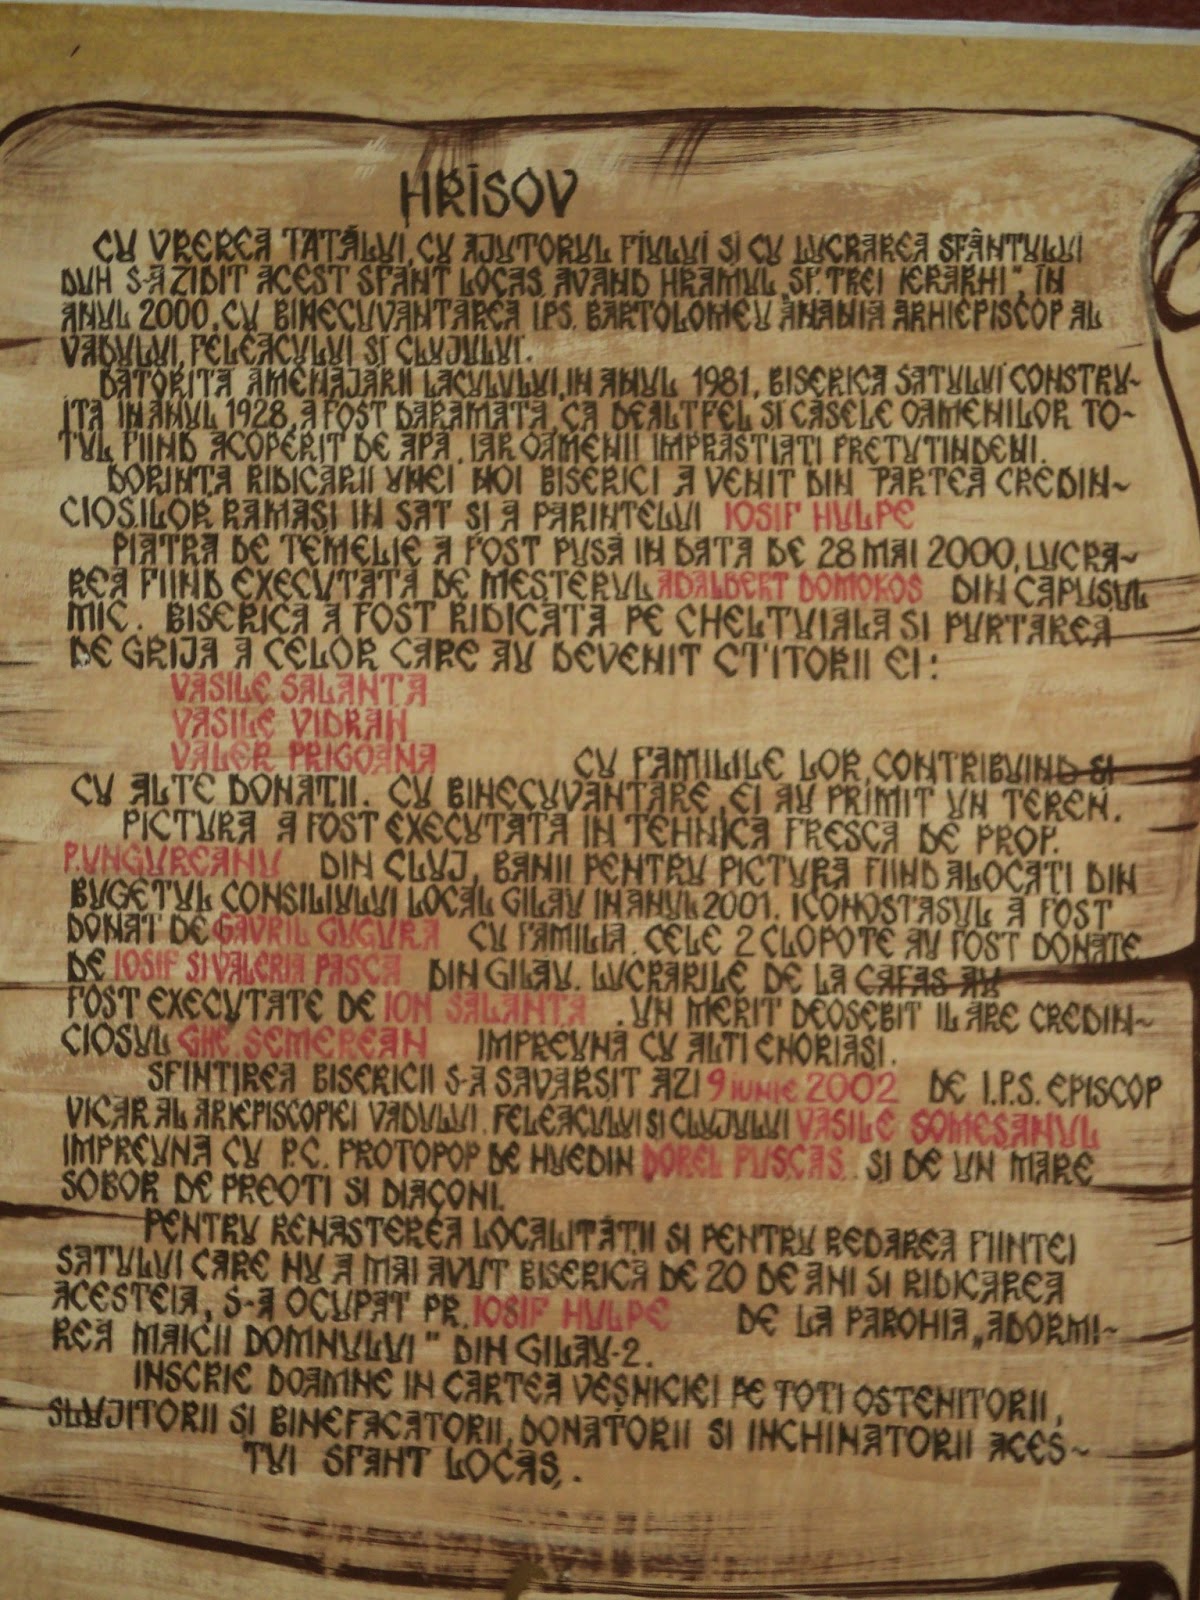 HRISOV
CU VREREA TATĂLUI, CU AJUTORUL FIULUI SI CU LUCRAREA SFÂNTULUI
DUH S-A ZIDIT ACEST SFANT LOCAȘ, AVAND HRAMUL „SF. TREI IERARHI", ÎN
ANUL 2000, CU BINECUVANTAREA I.P.S. BARTOLOMEU ANANIA ARHIEPISCOP AL
VADULUI, FELEACULUI SI CLUJULUI.
DATORITA AMENAJARII LACULULUI, IN ANUL 1981, BISERICA SATULUI CONSTRU~
ITA IN ANUL 1928, A FOST DARAMATA, CA DEALTFEL SI CASELE OAMENILOR TO~
TUL FIIND ACOPERIT DE APA, IAR OAMENII IMPRASTIAȚI PRETUTINDENI.
DORINȚA RIDICARII UNEI NOI BISERICI A VENIT DIN PARTEA CREDIN~
CIOSILOR RAMAȘI IN SAT SI A PARINTELUI IOSIF HULPE
PIATRA DE TEMELIE A FOST PUSA IN DATA DE 28 MAI 2000, LUCRA~
REA FIIND EXECUTATA DE MEȘTERUL ADALBERT DOMOKOS DIN CAPUSUL
MIC. BISERICA A FOST RIDICATA PE CHELTUIALA SI PURTAREA
DE GRIJA A CELOR CARE AU DEVENIT CTITORII EI:
VASILE SALANTA
VASILE VIDRAN
VALER PRIGOANA CU FAMILILE LOR, CONTRIBUIND SI
CU ALTE DONAȚII. CU BINECUVANTARE, EI AU PRIMIT UN TEREN.
PICTURA A FOST EXECUTATA IN TEHNICA FRESCA DE PROP.
P. UNGUREANU DIN CLUJ, BANII PENTRU PICTURA FIIND ALOCAȚI DIN
BUGETUL CONSILIULUI LOCAL GILAU IN ANUL 2001. ICONOSTASUL A FOST
DONAT DE GAVRIL GUGURA CU FAMILIA. CELE 2 CLOPOTE AU FOST DONATE
DE IOSIF SI VALERIA PASCA DIN GILAU. LUCRARILE DE LA CAFAS AU
FOST EXECUTATE DE ION SALANTA . UN MERIT DEOSEBIT IL ARE CREDIN~
CIOSUL GHE. SEMEREAN IMPREUNA CU ALTI ENORIASI.
SFINTIREA BISERICII S-A SAVARSIT AZI 9 IUNIE 2002 DE I.P.S. EPISCOP
VICAR AL ARIEPISCOPIEI VADULUI, FELEACULUI SI CLUJULUI VASILE SOMESANUL
IMPREUNA CU P.C. PROTOPOP DE HUEDIN DOREL PUSCAS, SI DE UN MARE
SOBOR DE PREOTI SI DIACONI.
PENTRU RENASTEREA LOCALITĂȚII SI PENTRU REDAREA FIINTEI
SATULUI CARE NU A MAI AVUT BISERICA DE 20 DE ANI SI RIDICAREA
ACESTEIA, S-A OCUPAT PR. IOSIF HULPE DE LA PAROHIA „ADORMI~
REA MAICII DOMNULUI" DIN GILAU-2.
INSCRIE DOAMNE IN CARTEA VEȘNICIEI PE TOTI OSTENITORII,
SLUJITORII SI BINEFACATORII, DONATORII SI INCHINATORII ACES~
TUI SFANT LOCAȘ.